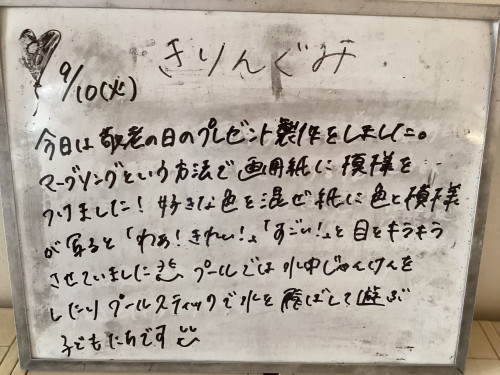 きりんぐみ
9/10(火)
今日は敬老の日のプレゼント製作をしました。
マーブリングという方法で画用紙に模様を
つけました！好きな色を混ぜ紙に色と模様
が写ると「わぁ！きれい！」「すごい！」と目をキラキラ
させていました プールでは水中じゃんけんを
したり プールスティックで水を飛ばして遊ぶ
子どもたちです